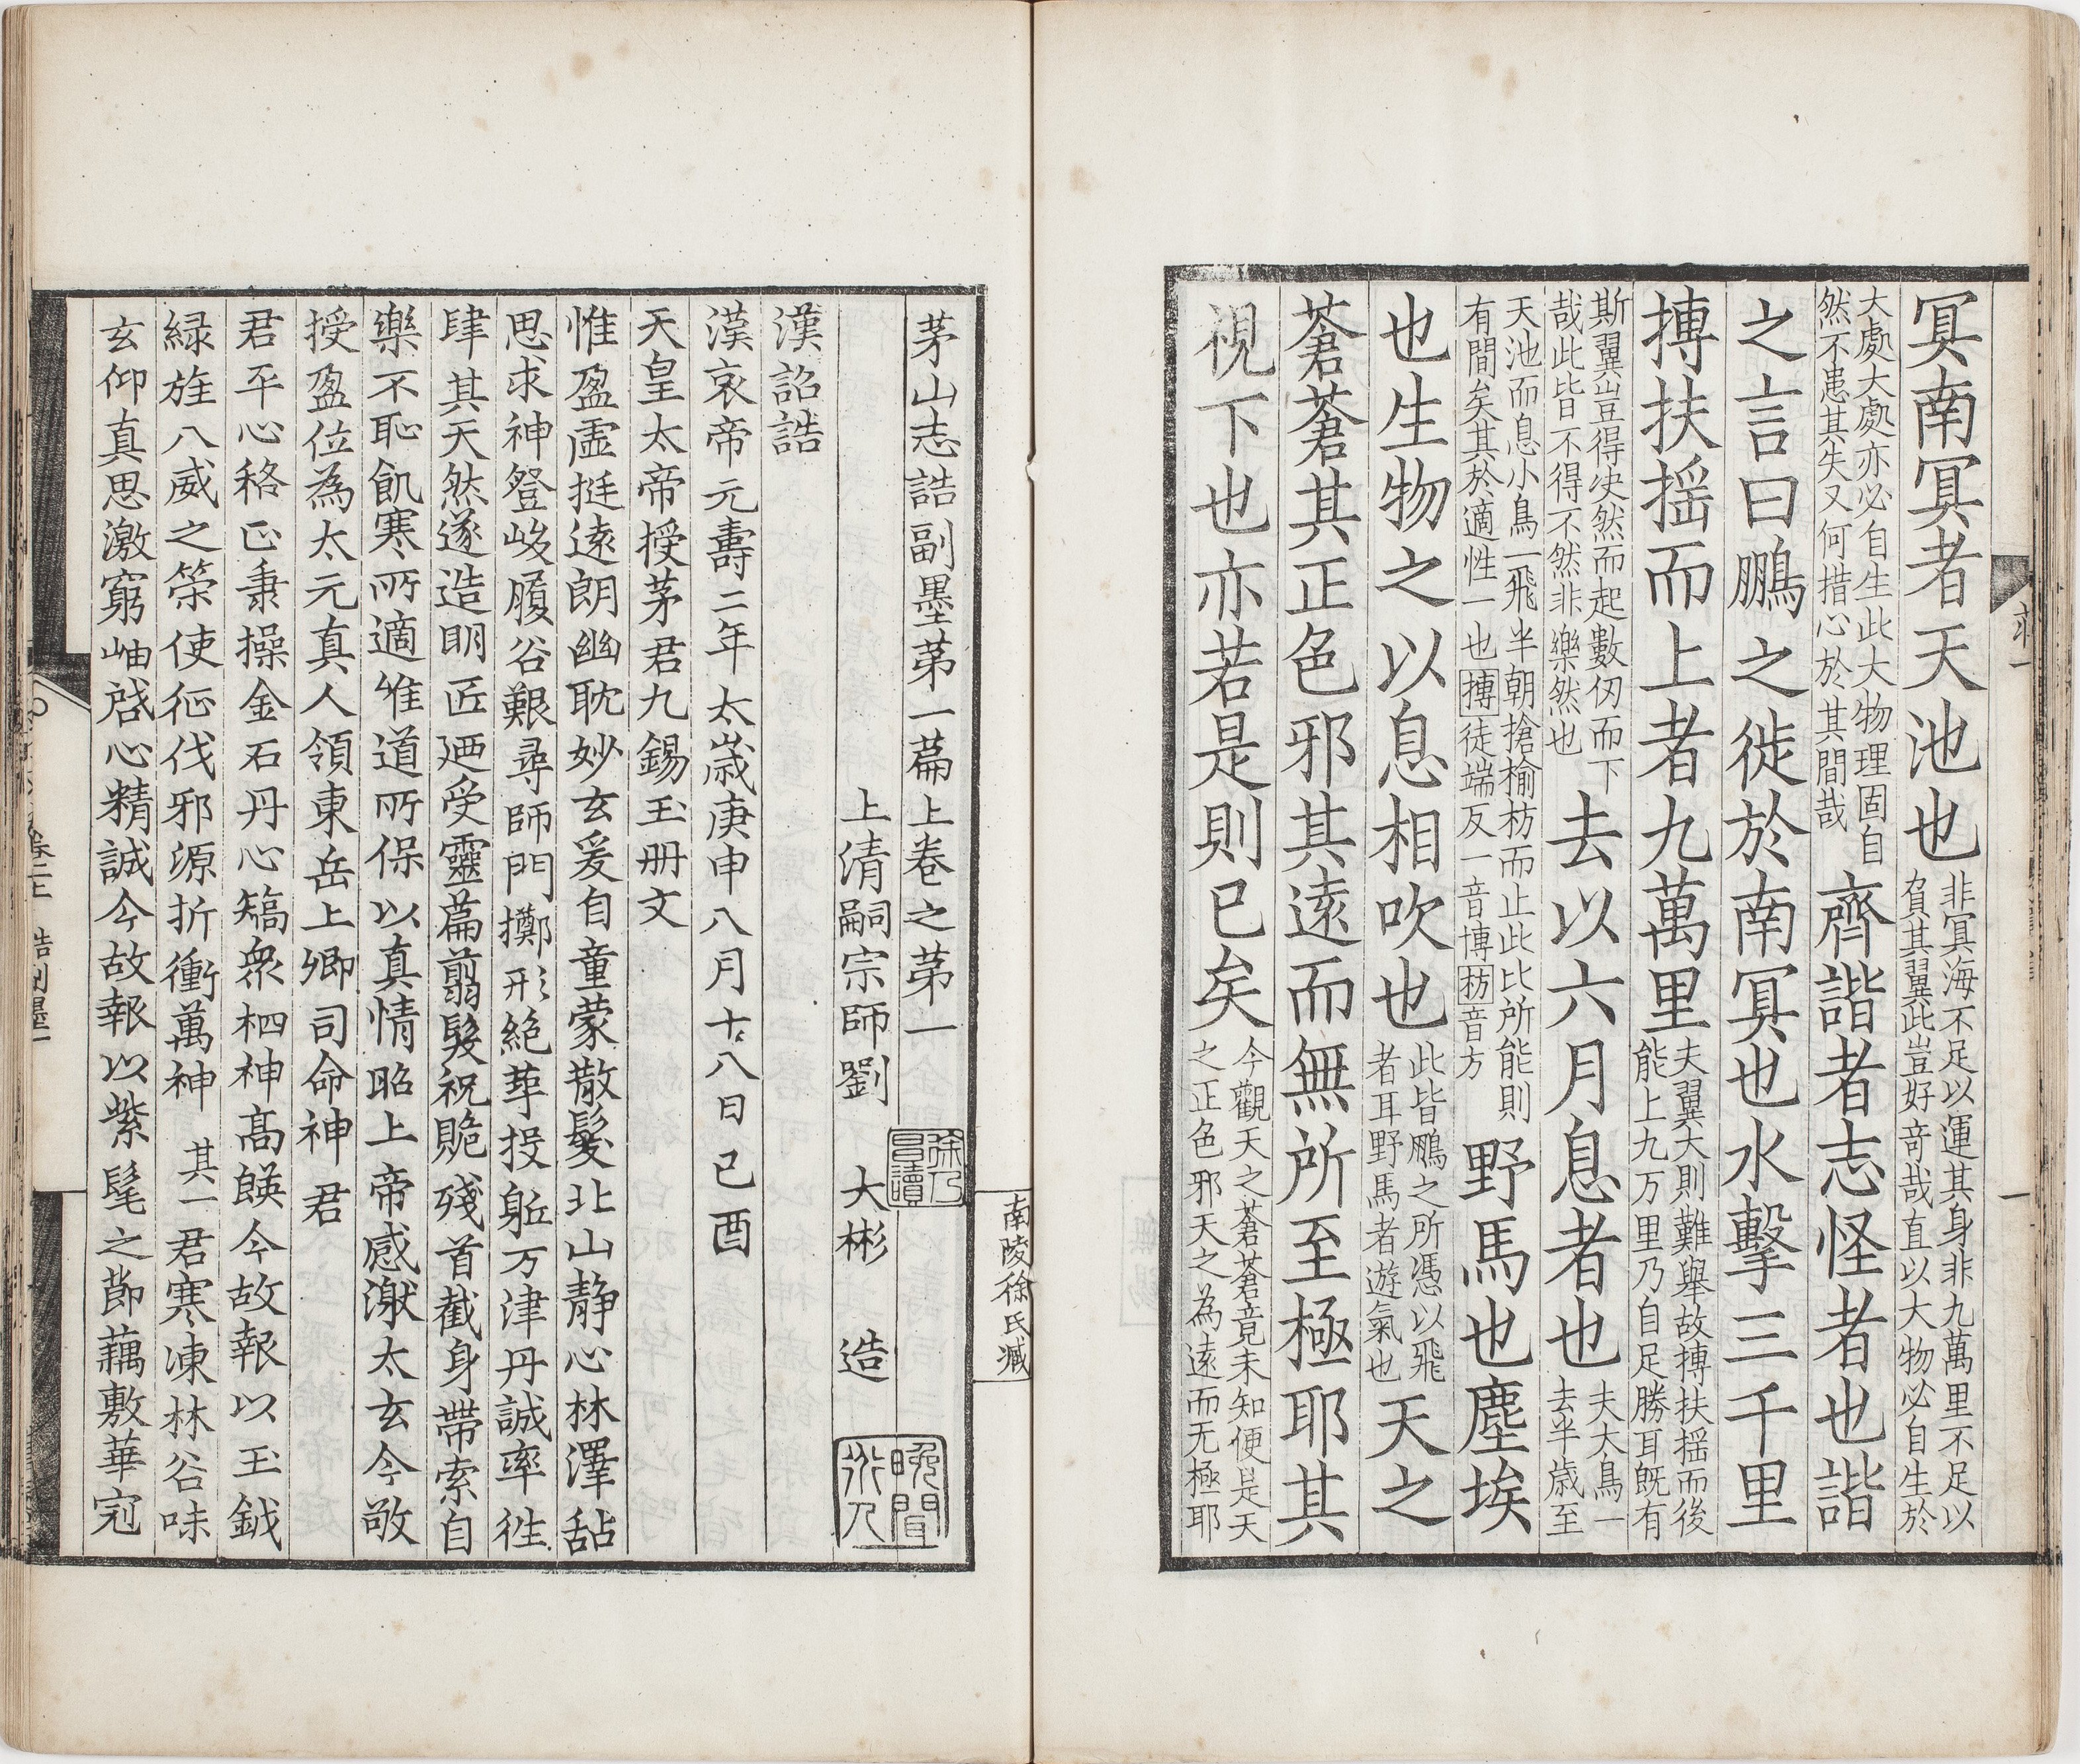 冥南冥者天池也
非冥海不足以運其身非九萬里不足以
負其翼此豈好竒哉直以大物必自生於
大處大處亦必自生此大物理固自
然不患其失又何措心於其間哉
齊諧者志怪者也諧
之言曰鵬之徙於南冥也水擊三千里
搏扶揺而上者九萬里
夫翼大則難舉故搏扶揺而後
能上九万里乃自足勝耳既有
斯翼豈得决然而起數仞而下
哉此皆不得不然非樂然也
去以六月息者也
夫大鳥一
去半歳至
天池而息小鳥一飛半朝搶榆枋而止此比所能則
有間矣其於適性一也搏徒端反一音博枋音方
野馬也塵埃
也生物之以息相吹也
此皆鵬之所憑以飛
者耳野馬者遊氣也
天之
蒼蒼其正色邪其遠而無所至極耶其
視下也亦若是則已矣
今觀天之蒼蒼竟未知便是天
之正色邪天之為遠而无極耶
一
南陵徐氏藏
茅山志誥副墨第一篇上卷之第一
上清嗣宗師劉大彬造
徐乃昌讀
漢詔誥
漢哀帝元壽二年太歳庚申八月十八日己酉
天皇太帝授茅君九錫玉冊文
惟盈虛挺遠朗幽耽妙玄爰自童蒙散髮北山静心林澤黏
思求神登峻履谷艱尋師門擲形絶莘投軀万津丹誠率徃
肆其天然遂造明匠廼受靈篇翦髮祝貺殘首截身帶索自
樂不恥飢寒所適惟道所保以真情昭上帝感澈太玄今敬
授盈位為太元真人領東岳上卿司命神君
君平心格正秉操金石丹心矯衆栶神髙䭊今故報以玉鉞
緑旌八威之策使征伐邪源折衝萬神其一君寒凍林谷味
玄仰真思激窮岫啓心精誠今故報以紫髦之節藕敷華冠